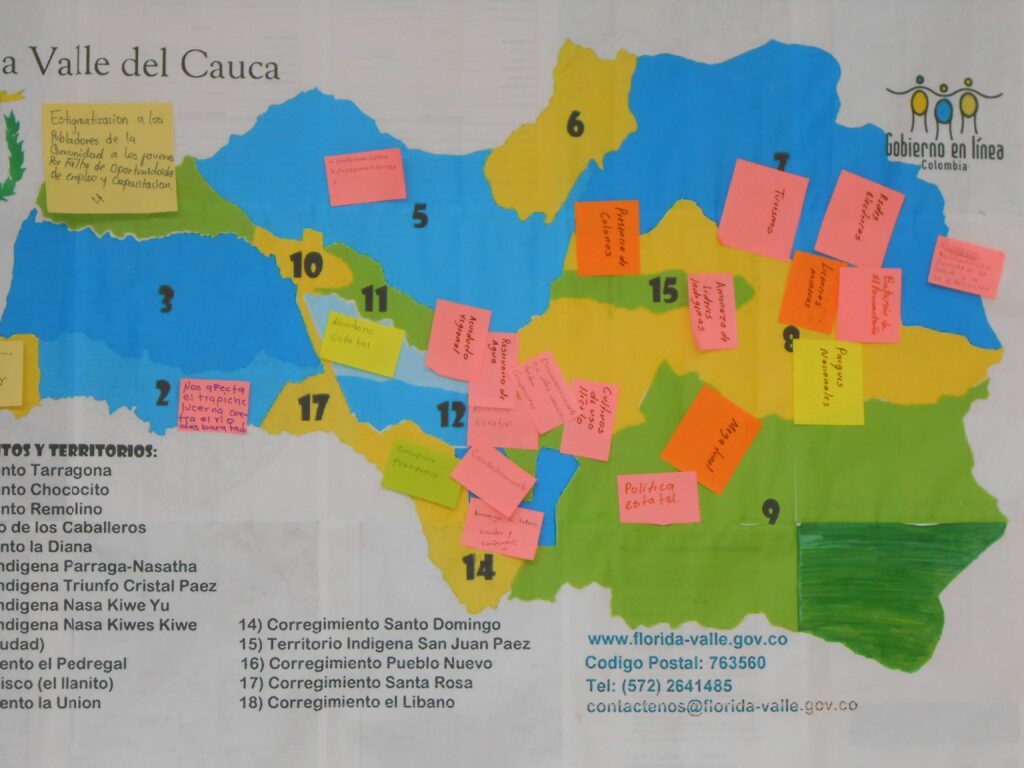 a Valle del Cauca
Estigmatizacion a los
Pobladores de la
Comunidad a los jovenes
Por Falta de Oportunidades
de empleo y Capacitacion.
Gobierno en línea
Colombia
6
7
5
3
10
11
15
8
2
17
12
9
14
Turismo
Redes
Presencia de
Colonos
Licencias
mineras
Amenaza de
lideres
Indigenas
Parques
Nacionales
Abandono
Estatal
Acueducto
Regional
Reservorio de
Agua
Estatal
Cultivos
de uso
ilicito
Mega tunel
Politica
estatal
Nos afecta
el trapiche
lucerna con-
tra el rio
desbaratado
TOS Y TERRITORIOS:
ento Tarragona
ento Chococito
ento Remolino
o de los Caballeros
ento la Diana
ndigena Parraga-Nasatha
ndigena Triunfo Cristal Paez
ndigena Nasa Kiwe Yu
ndigena Nasa Kiwes Kiwe
udad)
ento el Pedregal
isco (el llanito)
ento la Union
14) Corregimiento Santo Domingo
15) Territorio Indigena San Juan Paez
16) Corregimiento Pueblo Nuevo
17) Corregimiento Santa Rosa
18) Corregimiento el Libano
www.florida-valle.gov.co
Codigo Postal: 763560
Tel: (572) 2641485
contactenos@florida-valle.gov.co